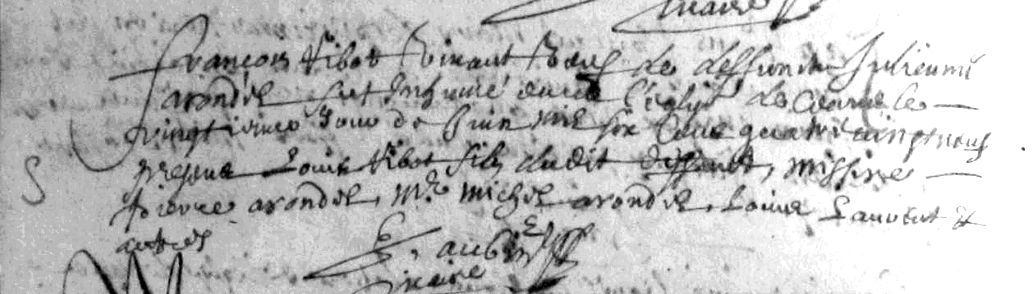 vicaire
François Ribot vivant veuf de deffunte Julienne
arondel fut Inhumé dans l'eglise de le
vingtieme Jour de Juin mil six cens quatre vingt neuf
presens Louis Ribot fils dudit deffunct, missire
Pierre arondel, Mr. michel arondel, Louis et
autres
G. aubin
vicaire